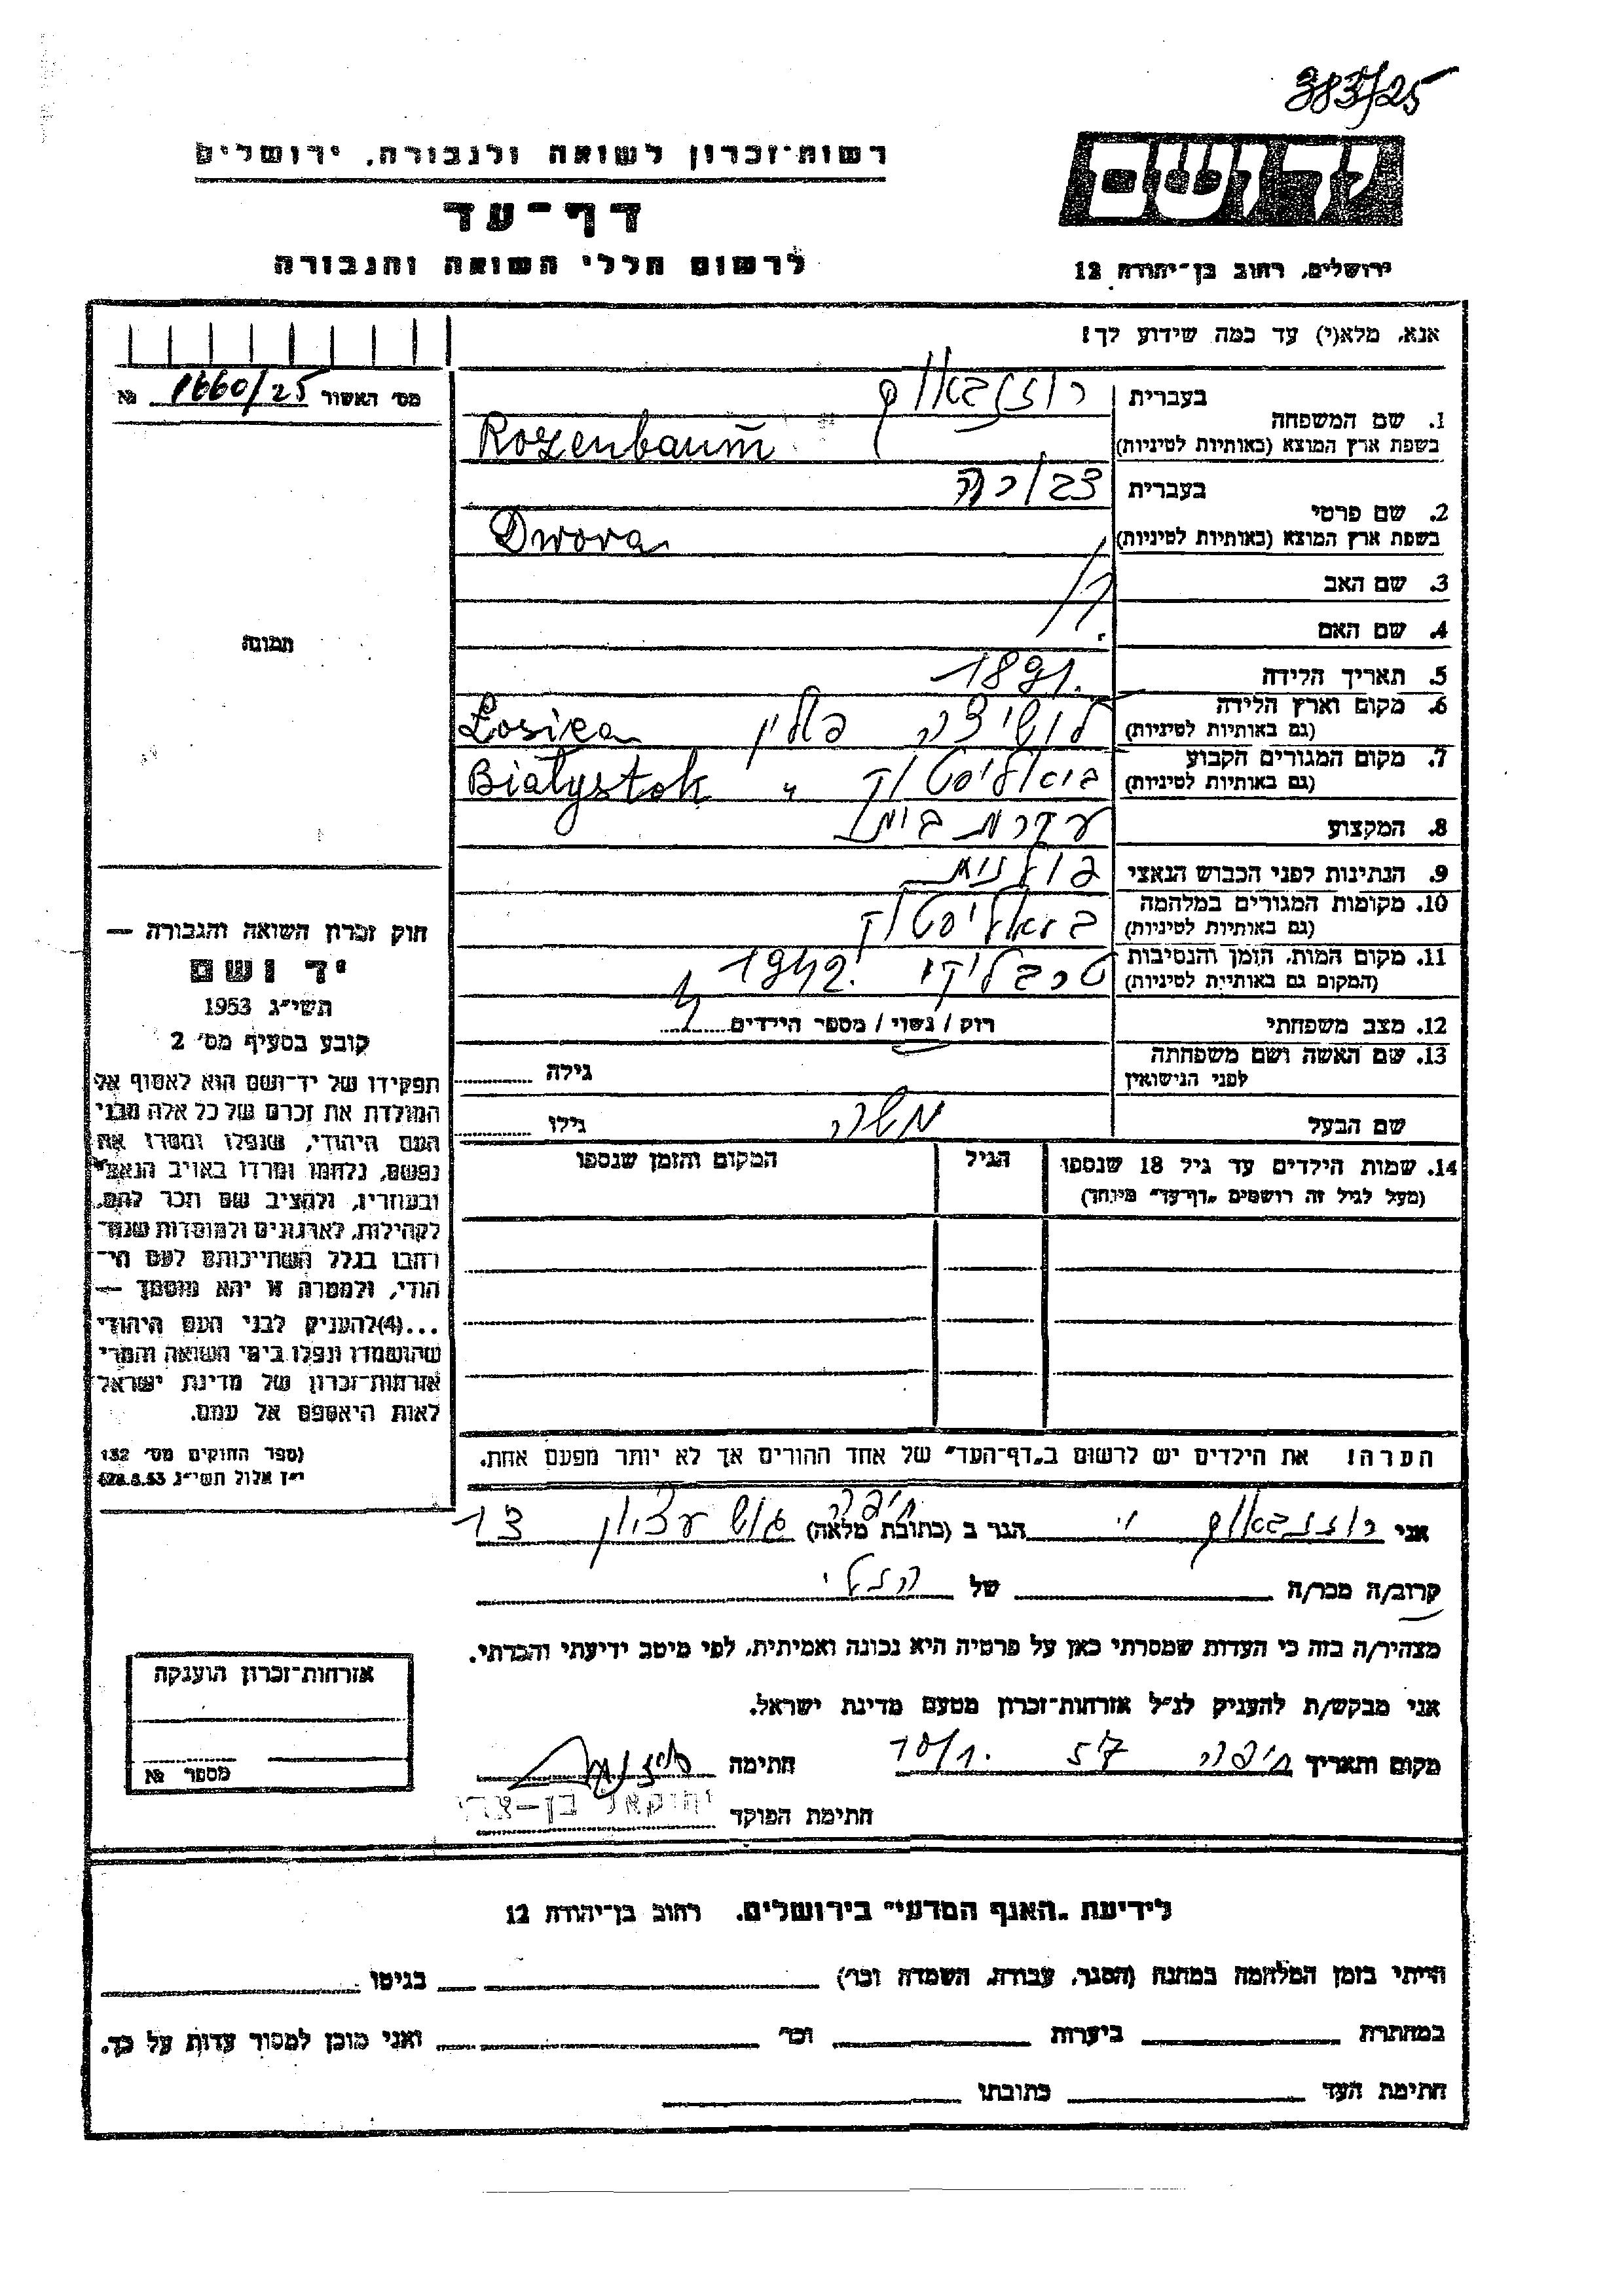 383/25
רשות־זכרון לשואה ולגבורה, ירושלים
ידושם
דף־עד
לרשום חללי השואה והגבורה
ירושלים, רחוב בן־יהודה 12
אנא, מלא(י) עד כמה שידוע לך!
מס׳ האשור 1660/25 №
בעברית רוזנבאום
1. שם המשפחה
בשפת ארץ המוצא (באותיות לטיניות) Rozenbaum
בעברית דבורה
2. שם פרטי
בשפת ארץ המוצא (באותיות לטיניות) Dwora
3. שם האב
4. שם האם
תמונה
5. תאריך הלידה 1891.
6. מקום וארץ הלידה
(גם באותיות לטיניות) לושיצה פולין Łosica
7. מקום המגורים הקבוע
(גם באותיות לטיניות) ביאליסטוק " Białystok
8. המקצוע עקרת בית
9. הנתינות לפני הכבוש הנאצי פולנית
10. מקומות המגורים במלחמה
(גם באותיות לטיניות) ביאליסטוק
11. מקום המות, הזמן והנסיבות
(המקום גם באותיית לטיניות) טרבלינקי 1942.
12. מצב משפחתי רוק / נשוי / מספר הילדים 4
13. שם האשה ושם משפחתה
לפני הנישואין גילה
שם הבעל משה גילו
14. שמות הילדים עד גיל 18 שנספו הגיל המקום והזמן שנספו
(מעל לגיל זה רושמים „דף־עד״ מיוחד)
חוק זכרון השואה והגבורה —
יד ושם
תשי״ג 1953
קובע בסעיף מס׳ 2
תפקידו של יד־ושם הוא לאסוף אל
המולדת את זכרם של כל אלה מבני
העם היהודי, שנפלו ומסרו את
נפשם, נלחמו ומרדו באויב הנאצי
ובעוזריו, ולהציב שם וזכר להם,
לקהילות, לארגונים ולמוסדות שנח־
רבו בגלל השתייכותם לעם הי־
הודי, ולמטרה זו יהא מוסמך —
...(4)להעניק לבני העם היהודי
שהושמדו ונפלו בימי השואה והמרי
אזרחות־זכרון של מדינת ישראל
לאות היאספם אל עמם.
(ספר החוקים מס׳ 132
י״ז אלול תשי״ג 28.8.53)
הערה! את הילדים יש לרשום ב„דף־העד״ של אחד ההורים אך לא יותר מפעם אחת.
אני רוזנבאום י׳ הגר ב (כתובת מלאה) חיפה גוש עציון 13
קרוב/ה מכר/ה של הנ״ל
מצהיר/ה בזה כי העדות שמסרתי כאן על פרטיה היא נכונה ואמיתית, לפי מיטב ידיעתי והכרתי.
אני מבקש/ת להעניק לנ״ל אזרחות־זכרון מטעם מדינת ישראל.
אזרחות־זכרון הוענקה
מספר №
מקום ותאריך חיפה 57 10/1. חתימה
חתימת הפוקד יחזקאל בן־צבי
לידיעת „האגף המדעי״ בירושלים, רחוב בן־יהודה 12
הייתי בזמן המלחמה במחנה (הסגר, עבודה, השמדה וכו׳) בגיטו
במחתרת ביערות וכו׳ ואני מוכן למסור עדות על כך.
חתימת העד כתובתו